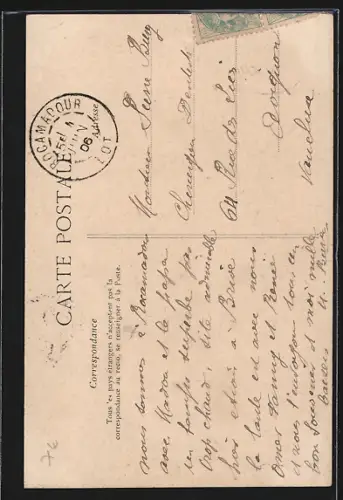 CARTE POSTALE
Correspondance
Adresse
Tous les pays étrangers n'acceptent pas la
correspondance au recto, se renseigner à la Poste.
ROCAMADOUR
LOT
06
nous sommes à Rocamadour
avec Madou et le papa
un temps superbe pas
trop chaud, site admirable
hier étions à Brive
la tante est avec nous
Omer Fanny et Renée
et nous t'envoyons tous un
bon souvenir et moi mille
Monsieur Pierre
Chirurgien Dentiste
64 Rue des Lices
Avignon
Vaucluse
7€